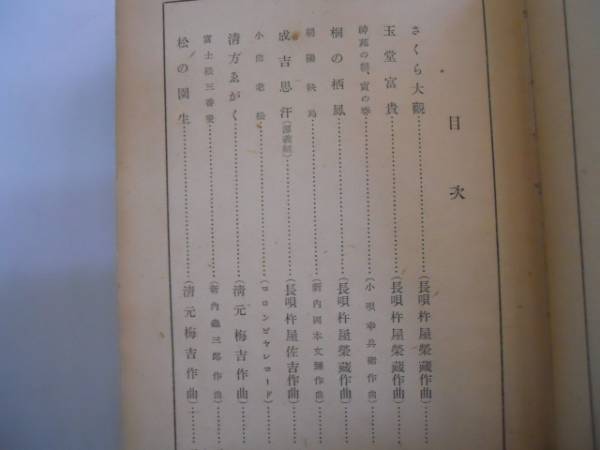 目次
さくら大觀……(長唄杵屋榮藏作曲)……
玉堂富貴……(長唄杵屋榮藏作曲)……
神苑の朝、寅の春……(小唄幸兵衞作曲)……
桐の栖鳳……(長唄杵屋榮藏作曲)……
朝陽映島……(新内岡本文彌作曲)……
成吉思汗(源義經)……(長唄杵屋佐吉作曲)……
小曲老松……(コロンビヤレコード)……
清方ゑがく……(清元梅吉作曲)……
富士松三番叟……(新内 三郎作曲)……
松の園生……(清元梅吉作曲)……